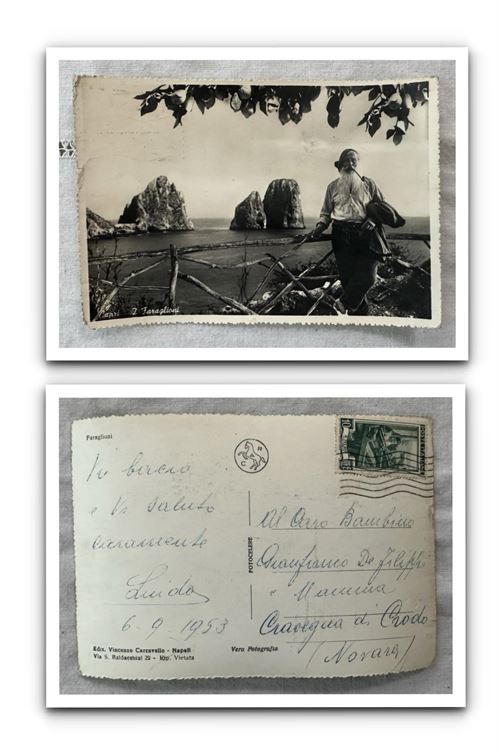 Capri - I Faraglioni
Faraglioni
C R
Vi bacio
e Vi saluto
caramente
Guido
6-9-1953
Ediz. Vincenzo Carcavallo - Napoli
Via S. Baldacchini 29 - Rip. Vietata
FOTOCELERE
Vera Fotografia
Al Caro Bambino
Gianfranco De Filippi
e Mamma
Cravegna di Crodo
(Novara)